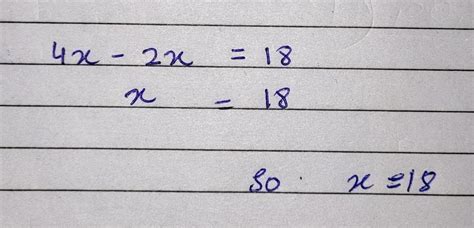 4x - 2x = 18
x = 18
So x = 18